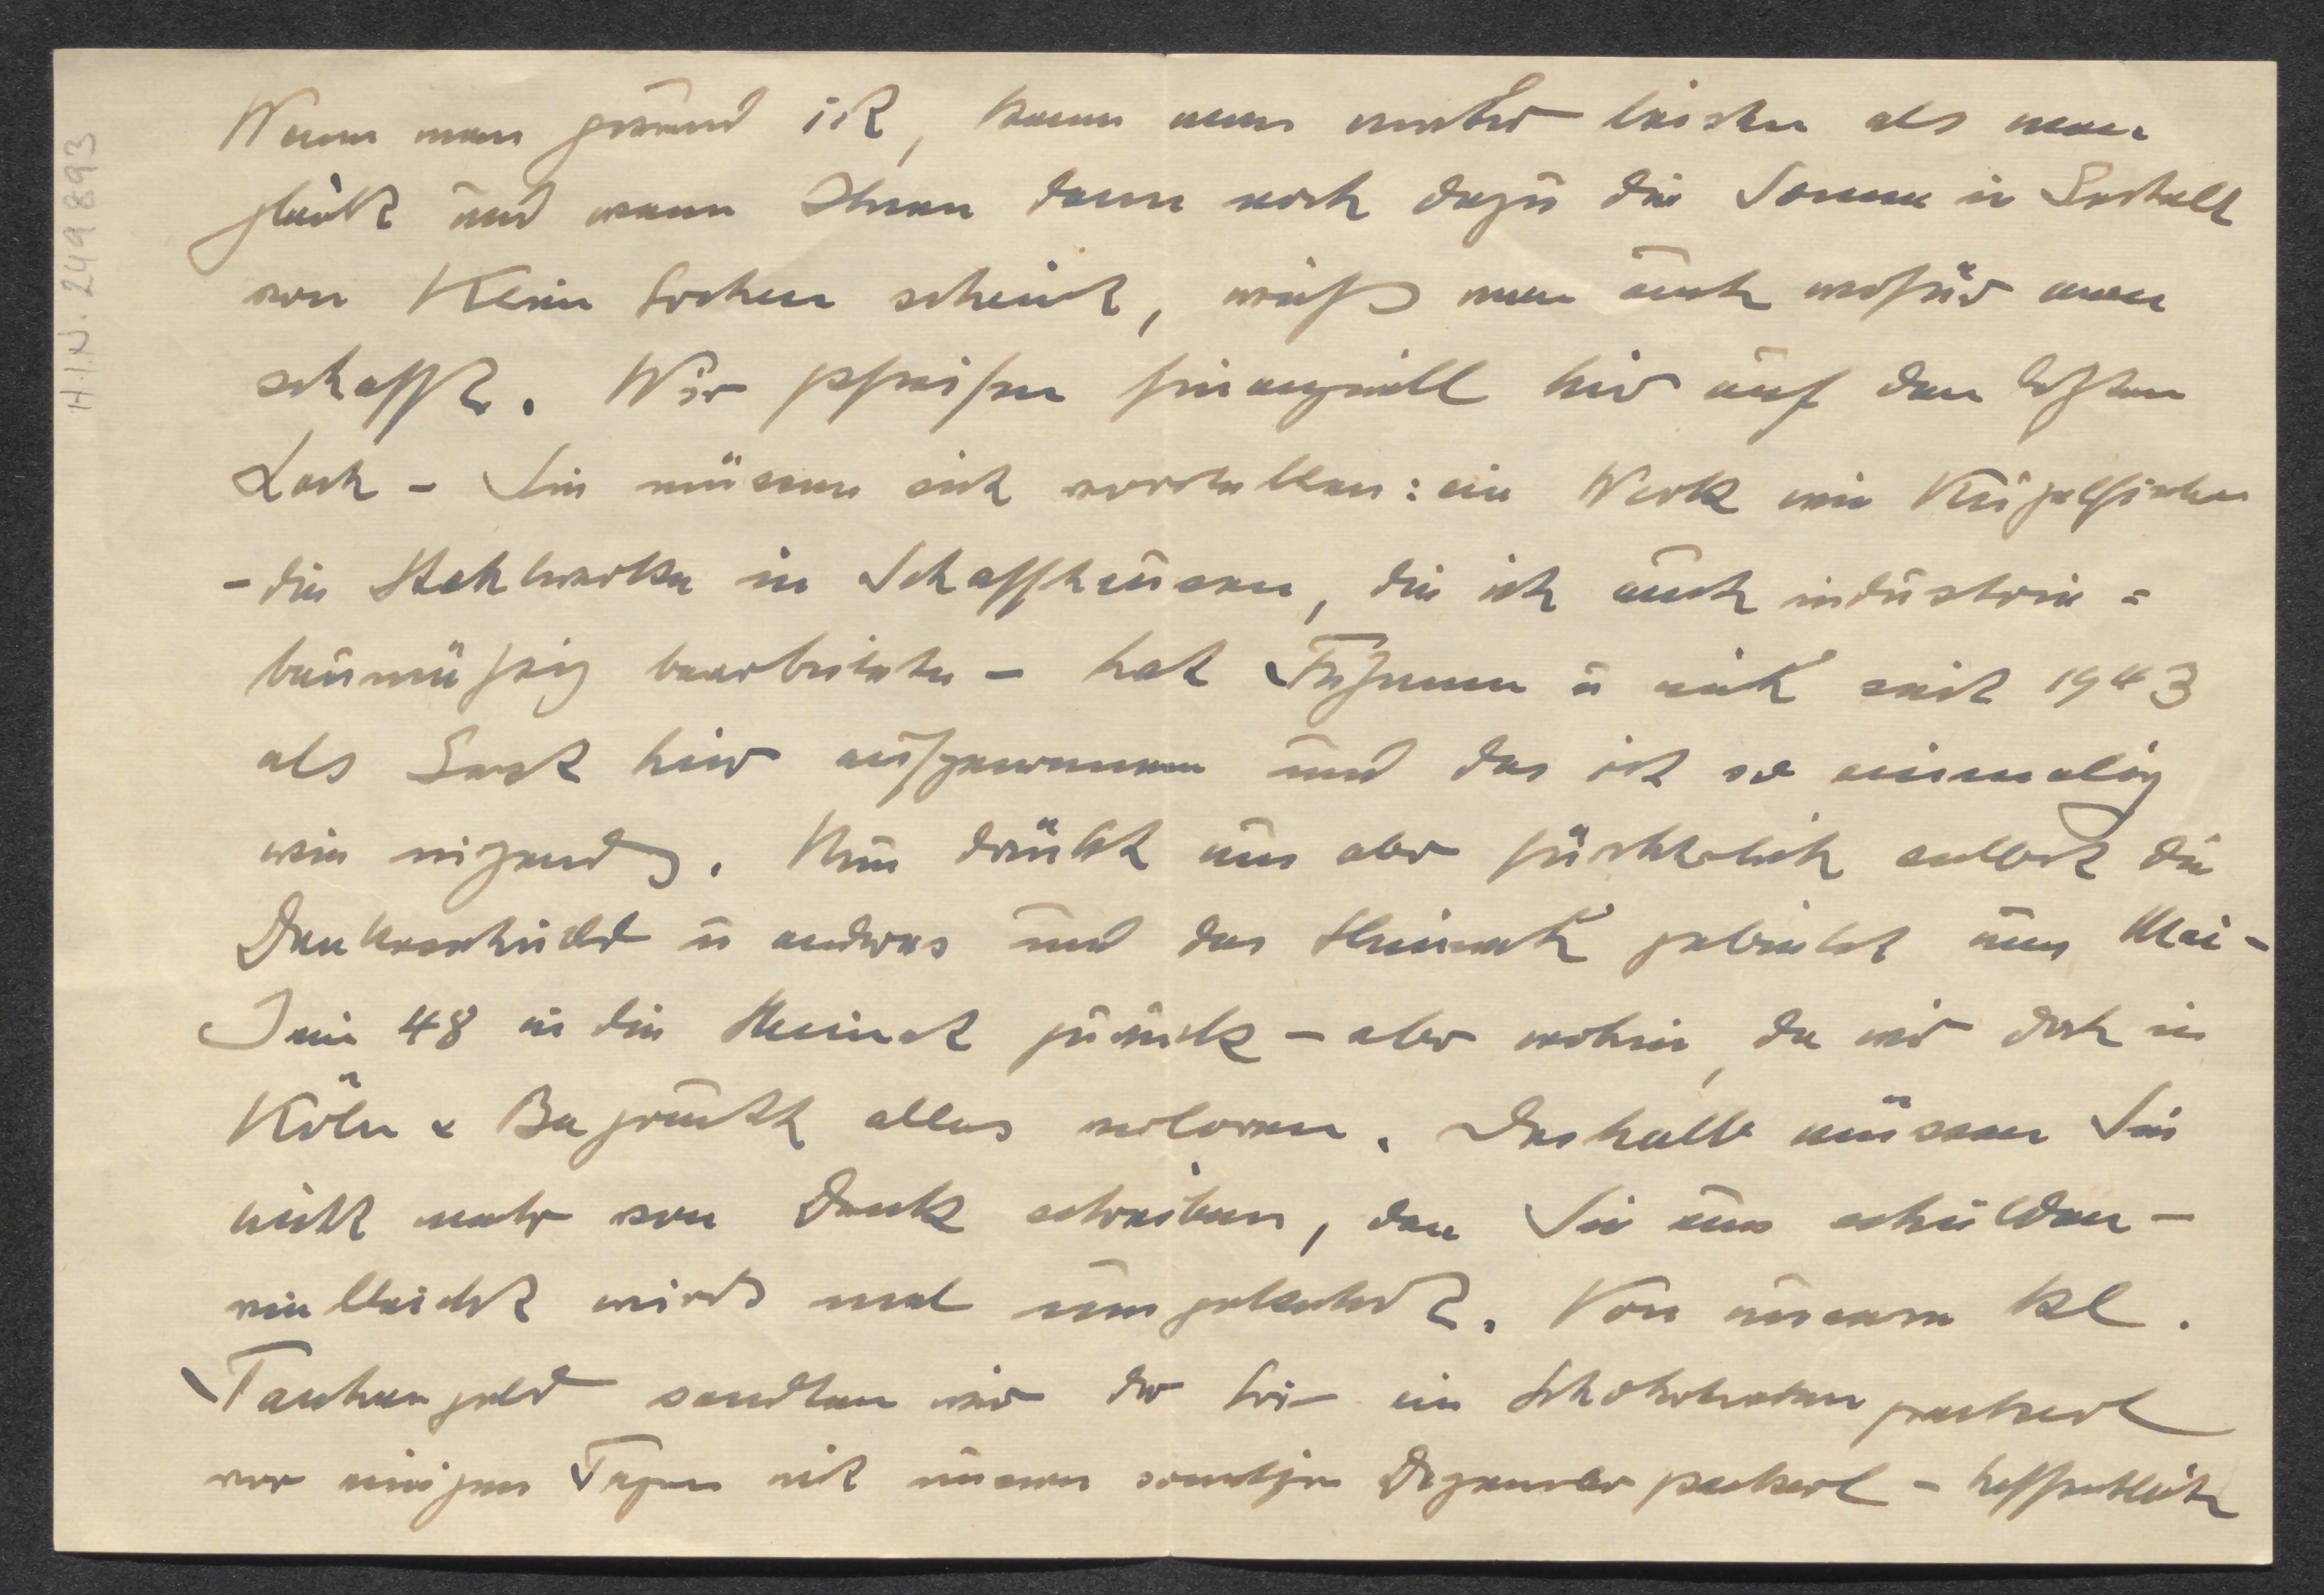 H.I.N. 249893
Wenn man gesund ist, kann man mehr leisten als man
glaubt und wenn Ihnen dann noch dazu die Sonne in Gestalt
von Klein scheint, weiß man auch wofür man
schafft. Wir pfeifen finanziell hier auf dem letzten
Loch - Sie müssen sich vorstellen: ein Werk wie Kugelfischer
- die Stahlwerke in Schaffhausen, die ich auch industrie=
baumäßig bearbeitete - hat u mich seit 1943
als Gast hier aufgenommen und das ist so einmalig
wie nirgends. Nun drückt uns aber fürchterlich selbst die
Dankesschuld u anderes und das Heimweh gebietet uns Mai-
Juni 48 in die Heimat zurück - aber wohin, da wir doch in
Köln & Bayreuth alles verloren. Deshalb müssen Sie
nicht mehr von Dank schreiben, den Sie uns schulden -
vielleicht wirds mal umgekehrt. Von unserm kl.
Taschengeld sandten wir ein Schokoladenpackerl
vor einigen Tagen mit unserm sonstigen Dezemberpackerl - hoffentlich